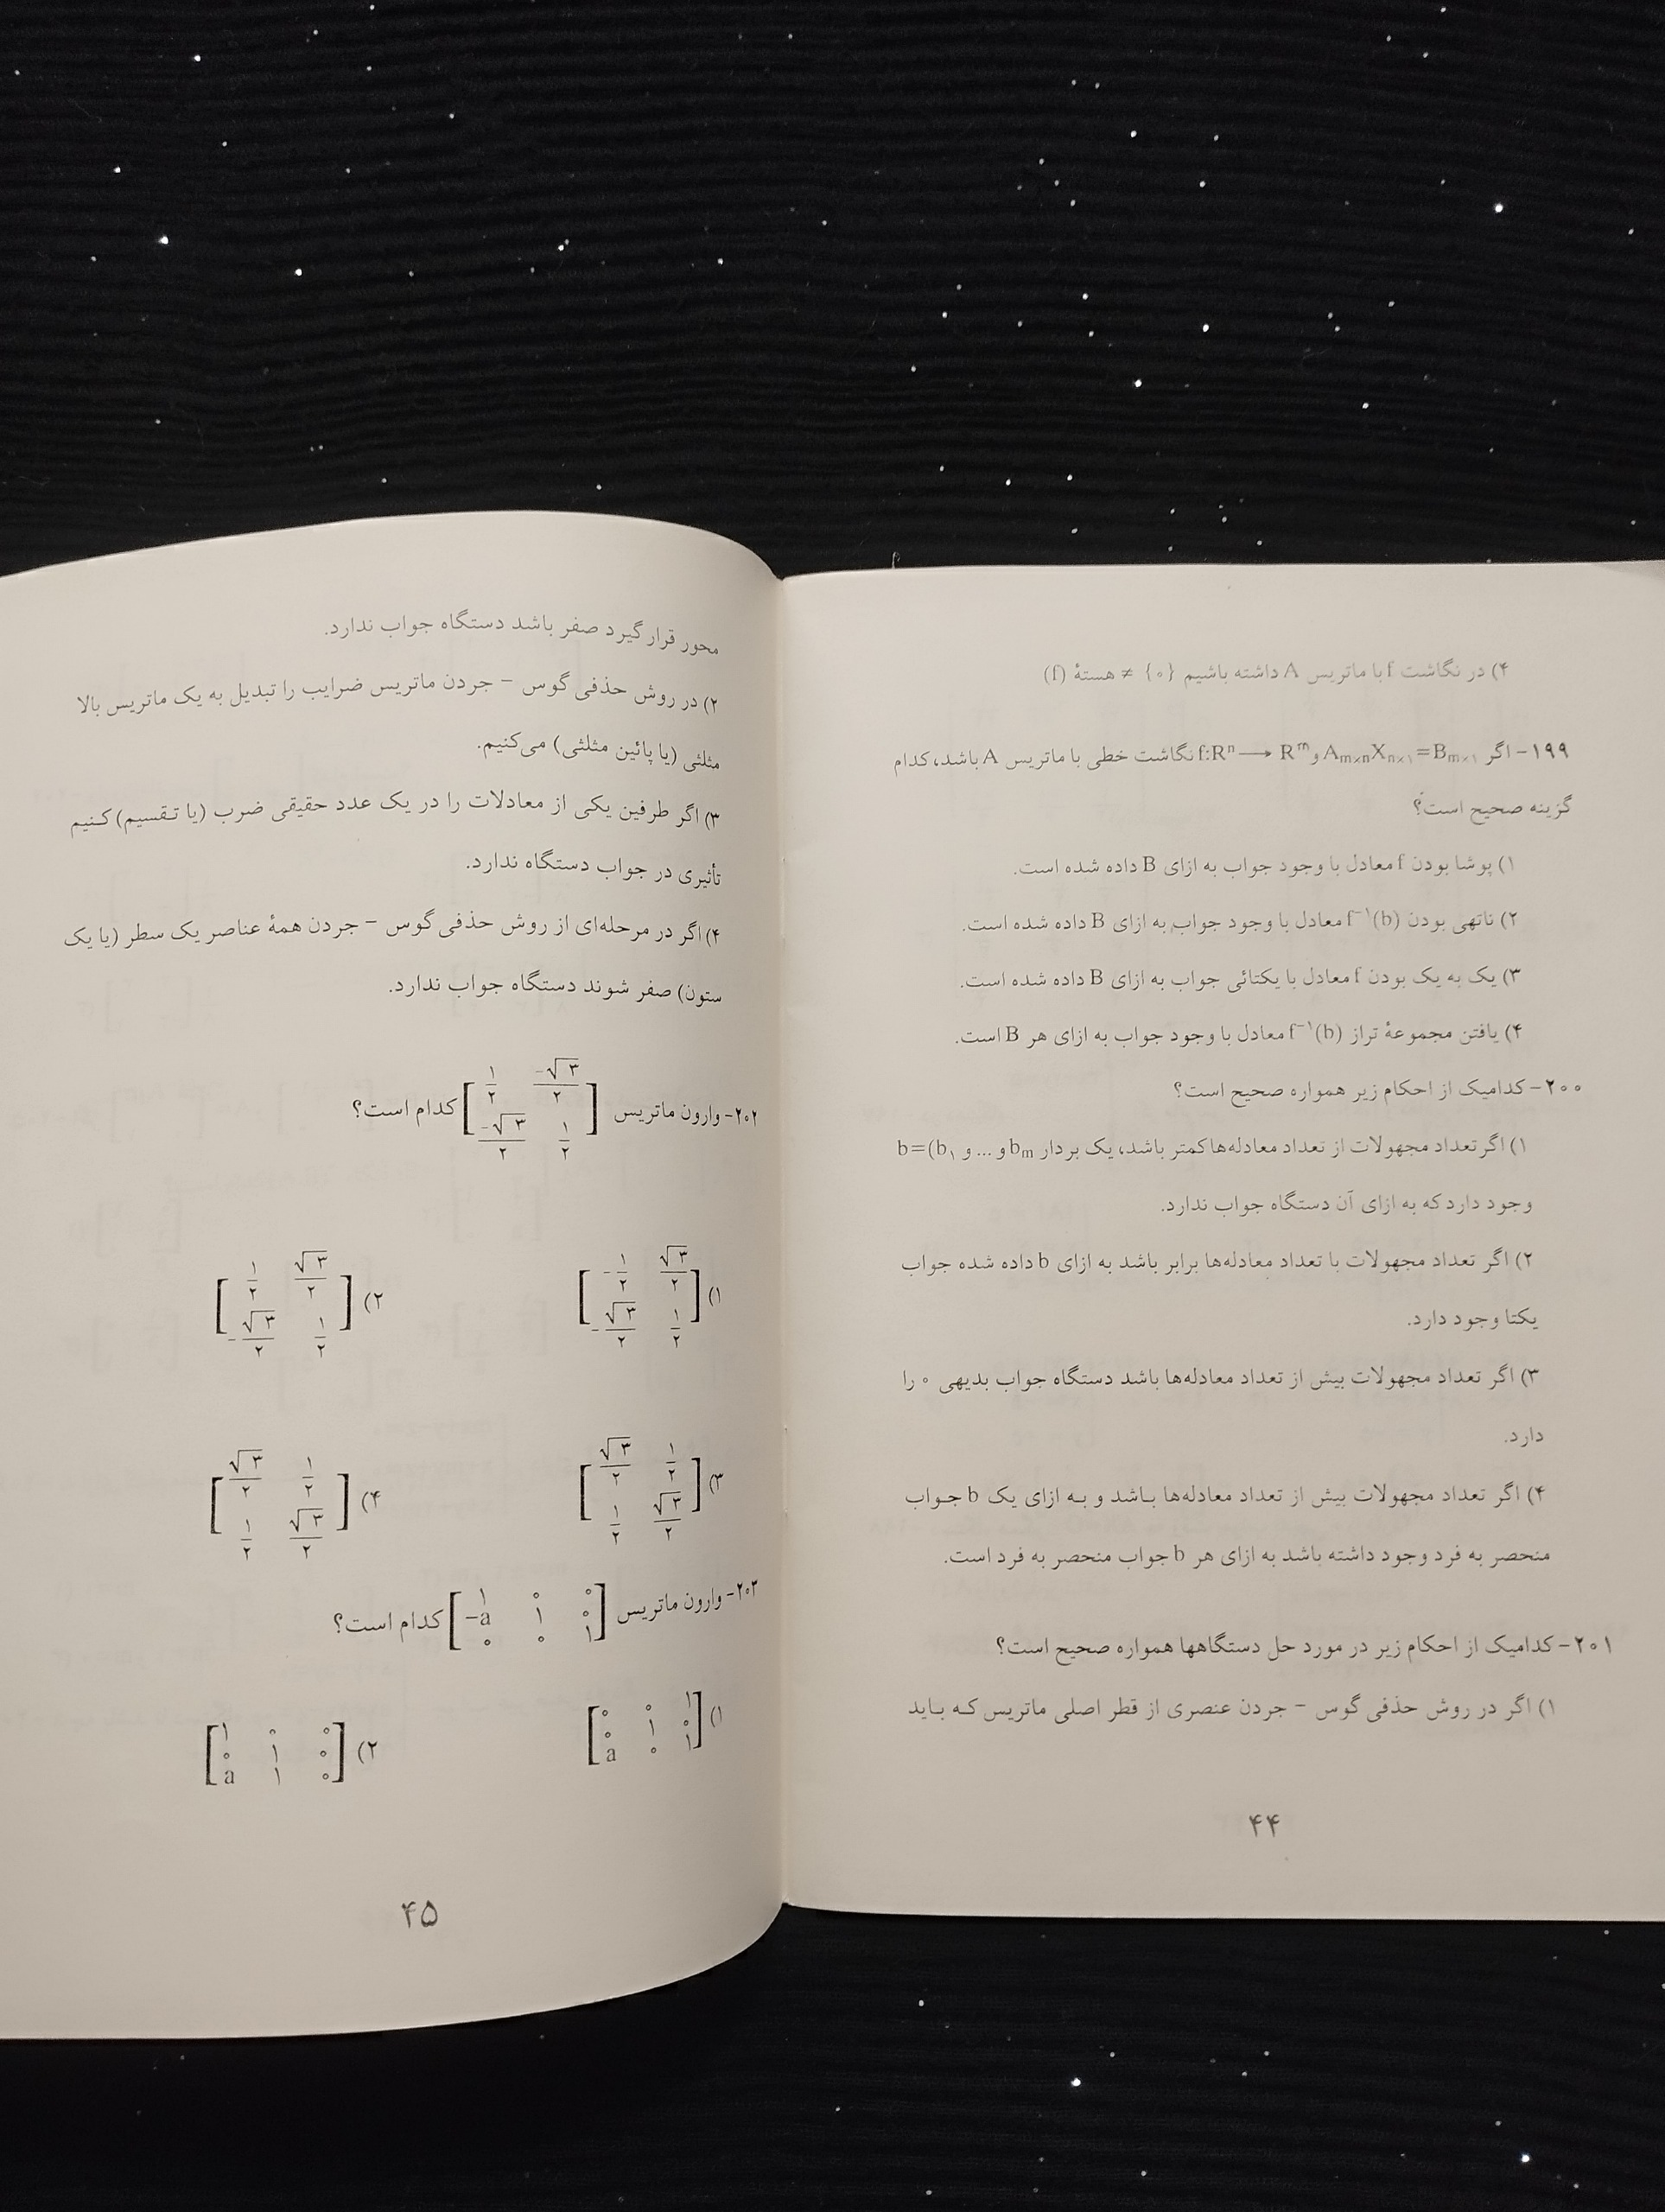 ۴) در نگاشت f با ماتریس A داشته باشیم {۰} ≠ هستهٔ (f)
۱۹۹- اگر A_{m×n}X_{n×۱}=B_{m×۱} و f:Rⁿ ⟶ Rᵐ نگاشت خطی با ماتریس A باشد، کدام
گزینه صحیح است؟
۱) پوشا بودن f معادل با وجود جواب به ازای B داده شده است.
۲) ناتهی بودن f⁻¹(b) معادل با وجود جواب به ازای B داده شده است.
۳) یک به یک بودن f معادل با یکتائی جواب به ازای B داده شده است.
۴) یافتن مجموعهٔ تراز f⁻¹(b) معادل با وجود جواب به ازای هر B است.
۲۰۰- کدامیک از احکام زیر همواره صحیح است؟
۱) اگر تعداد مجهولات از تعداد معادله‌ها کمتر باشد، یک بردار b=(b₁ و ... و bₘ
وجود دارد که به ازای آن دستگاه جواب ندارد.
۲) اگر تعداد مجهولات با تعداد معادله‌ها برابر باشد به ازای b داده شده جواب
یکتا وجود دارد.
۳) اگر تعداد مجهولات بیش از تعداد معادله‌ها باشد دستگاه جواب بدیهی ۰ را
دارد.
۴) اگر تعداد مجهولات بیش از تعداد معادله‌ها باشد و به ازای یک b جواب
منحصر به فرد وجود داشته باشد به ازای هر b جواب منحصر به فرد است.
۲۰۱- کدامیک از احکام زیر در مورد حل دستگاهها همواره صحیح است؟
۱) اگر در روش حذفی گوس - جردن عنصری از قطر اصلی ماتریس که باید
۴۴
محور قرار گیرد صفر باشد دستگاه جواب ندارد.
۲) در روش حذفی گوس - جردن ماتریس ضرایب را تبدیل به یک ماتریس بالا
مثلثی (یا پائین مثلثی) می‌کنیم.
۳) اگر طرفین یکی از معادلات را در یک عدد حقیقی ضرب (یا تقسیم) کنیم
تأثیری در جواب دستگاه ندارد.
۴) اگر در مرحله‌ای از روش حذفی گوس - جردن همهٔ عناصر یک سطر (یا یک
ستون) صفر شوند دستگاه جواب ندارد.
۲۰۲- وارون ماتریس [۱/۲ -√۳/۲ ; -√۳/۲ ۱/۲] کدام است؟
۱) [-۱/۲ √۳/۲ ; -√۳/۲ ۱/۲] ۲) [۱/۲ √۳/۲ ; -√۳/۲ ۱/۲]
۳) [√۳/۲ ۱/۲ ; ۱/۲ √۳/۲] ۴) [√۳/۲ ۱/۲ ; ۱/۲ √۳/۲]
۲۰۳- وارون ماتریس [۱ ۰ ۰ ; -a ۱ ۰ ; ۰ ۰ ۱] کدام است؟
۱) [۰ ۰ ۱ ; ۰ ۱ ۰ ; a ۰ ۱] ۲) [۱ ۰ ۰ ; ۰ ۱ ۰ ; a ۱ ۰]
۴۵